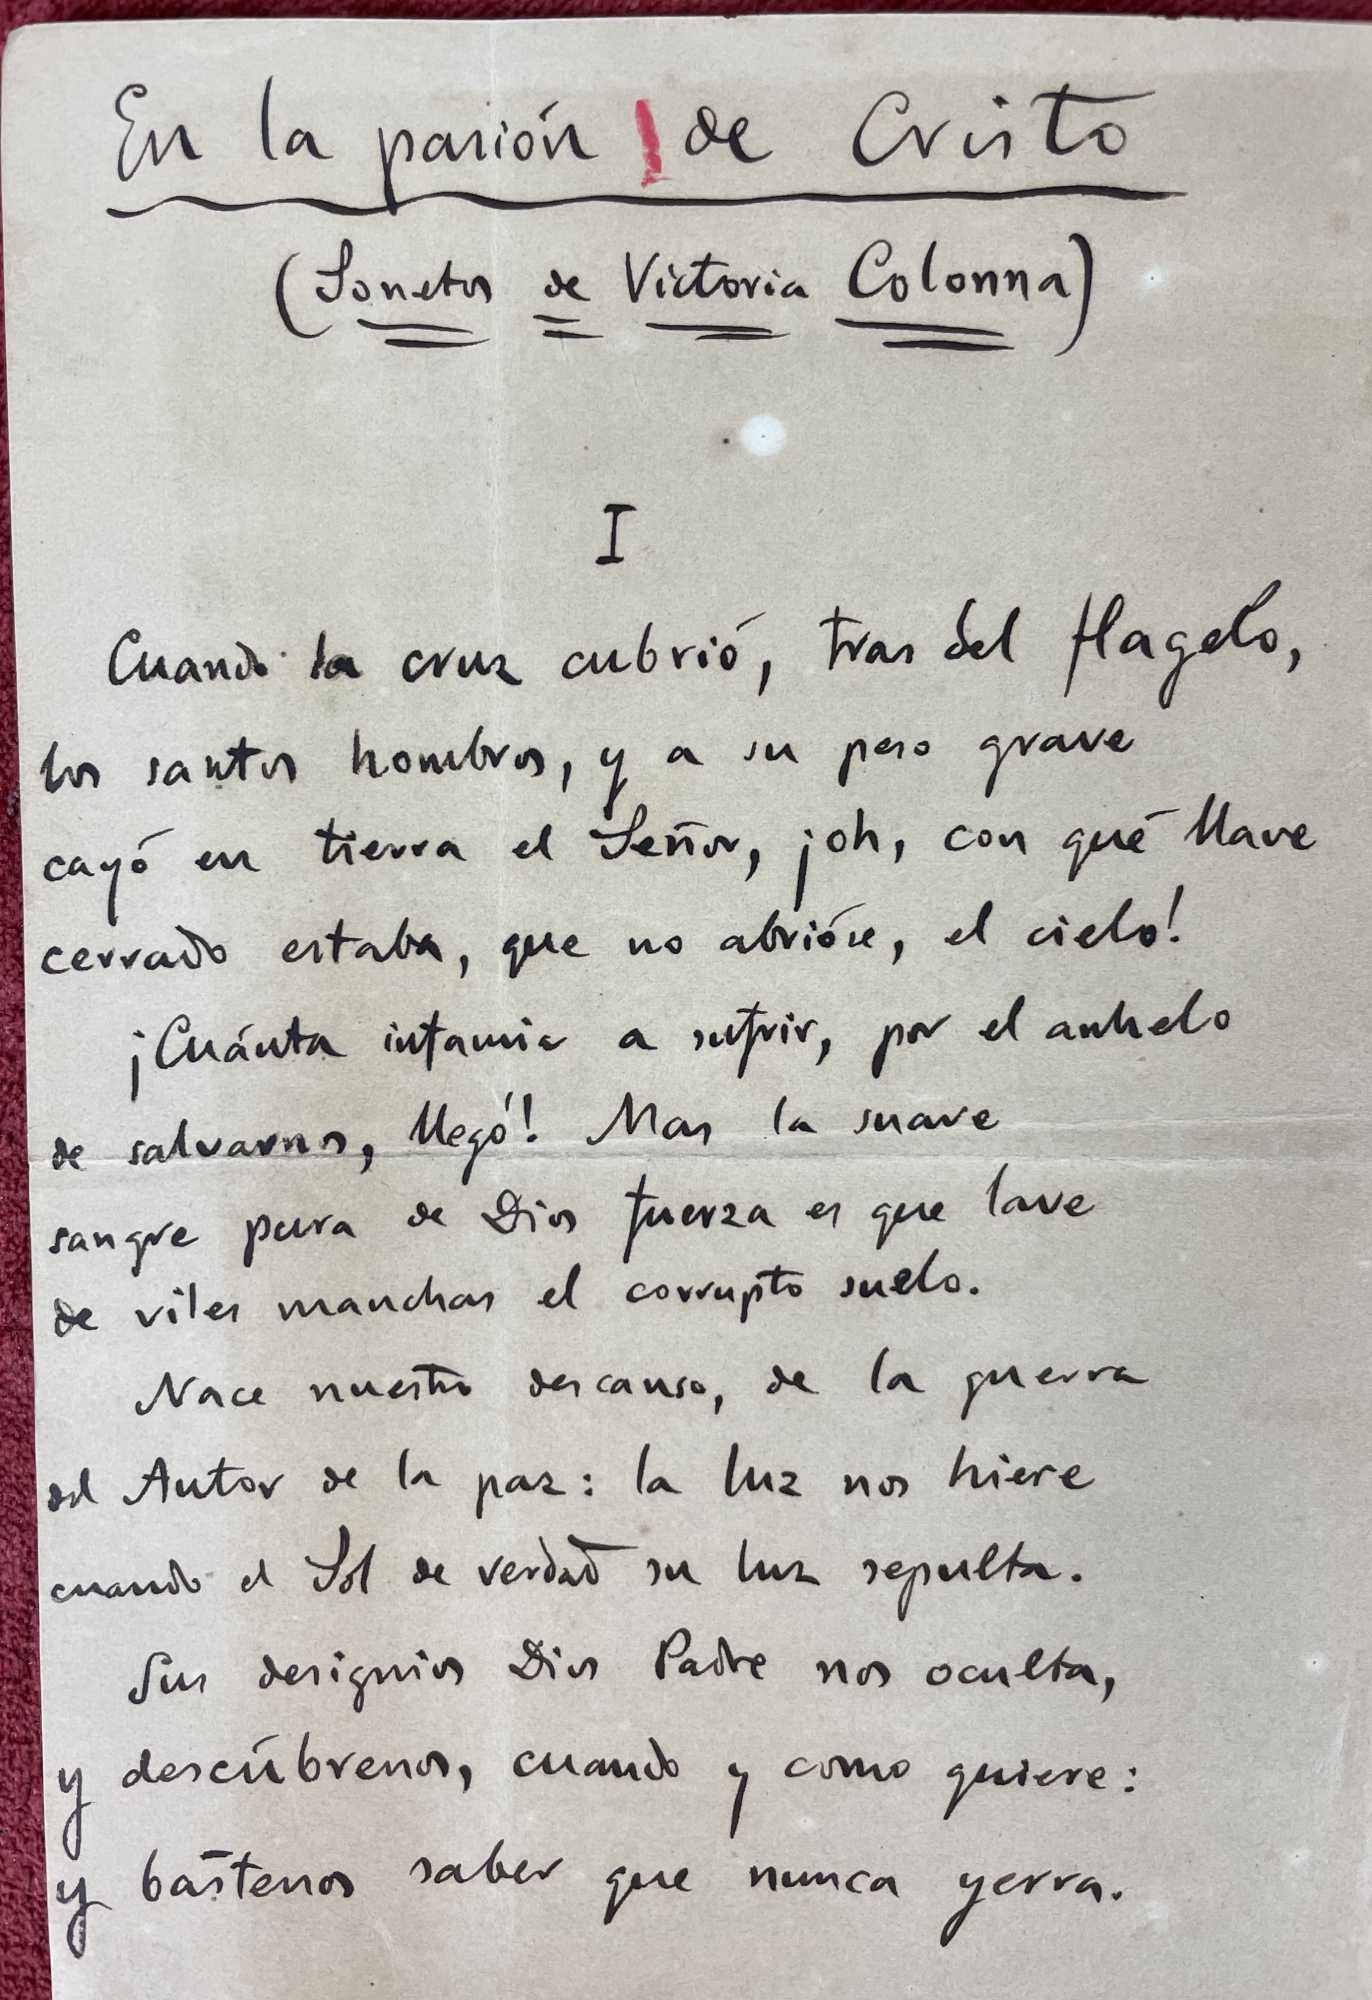 En la pasión de Cristo
(Sonetos de Victoria Colonna)
I
Cuando la cruz cubrió, tras del flagelo,
los santos hombros, y a su peso grave
cayó en tierra el Señor, ¡oh, con qué llave
cerrado estaba, que no abrióse, el cielo!
¡Cuánta infamia a sufrir, por el anhelo
de salvarnos, llegó! Mas la suave
sangre pura de Dios fuerza es que lave
de viles manchas el corrupto suelo.
Nace nuestro descanso, de la guerra
del Autor de la paz: la luz nos hiere
cuando el Sol de verdad su luz sepulta.
Sus designios Dios Padre nos oculta,
y descúbrenos, cuando y como quiere:
y bástenos saber que nunca yerra.